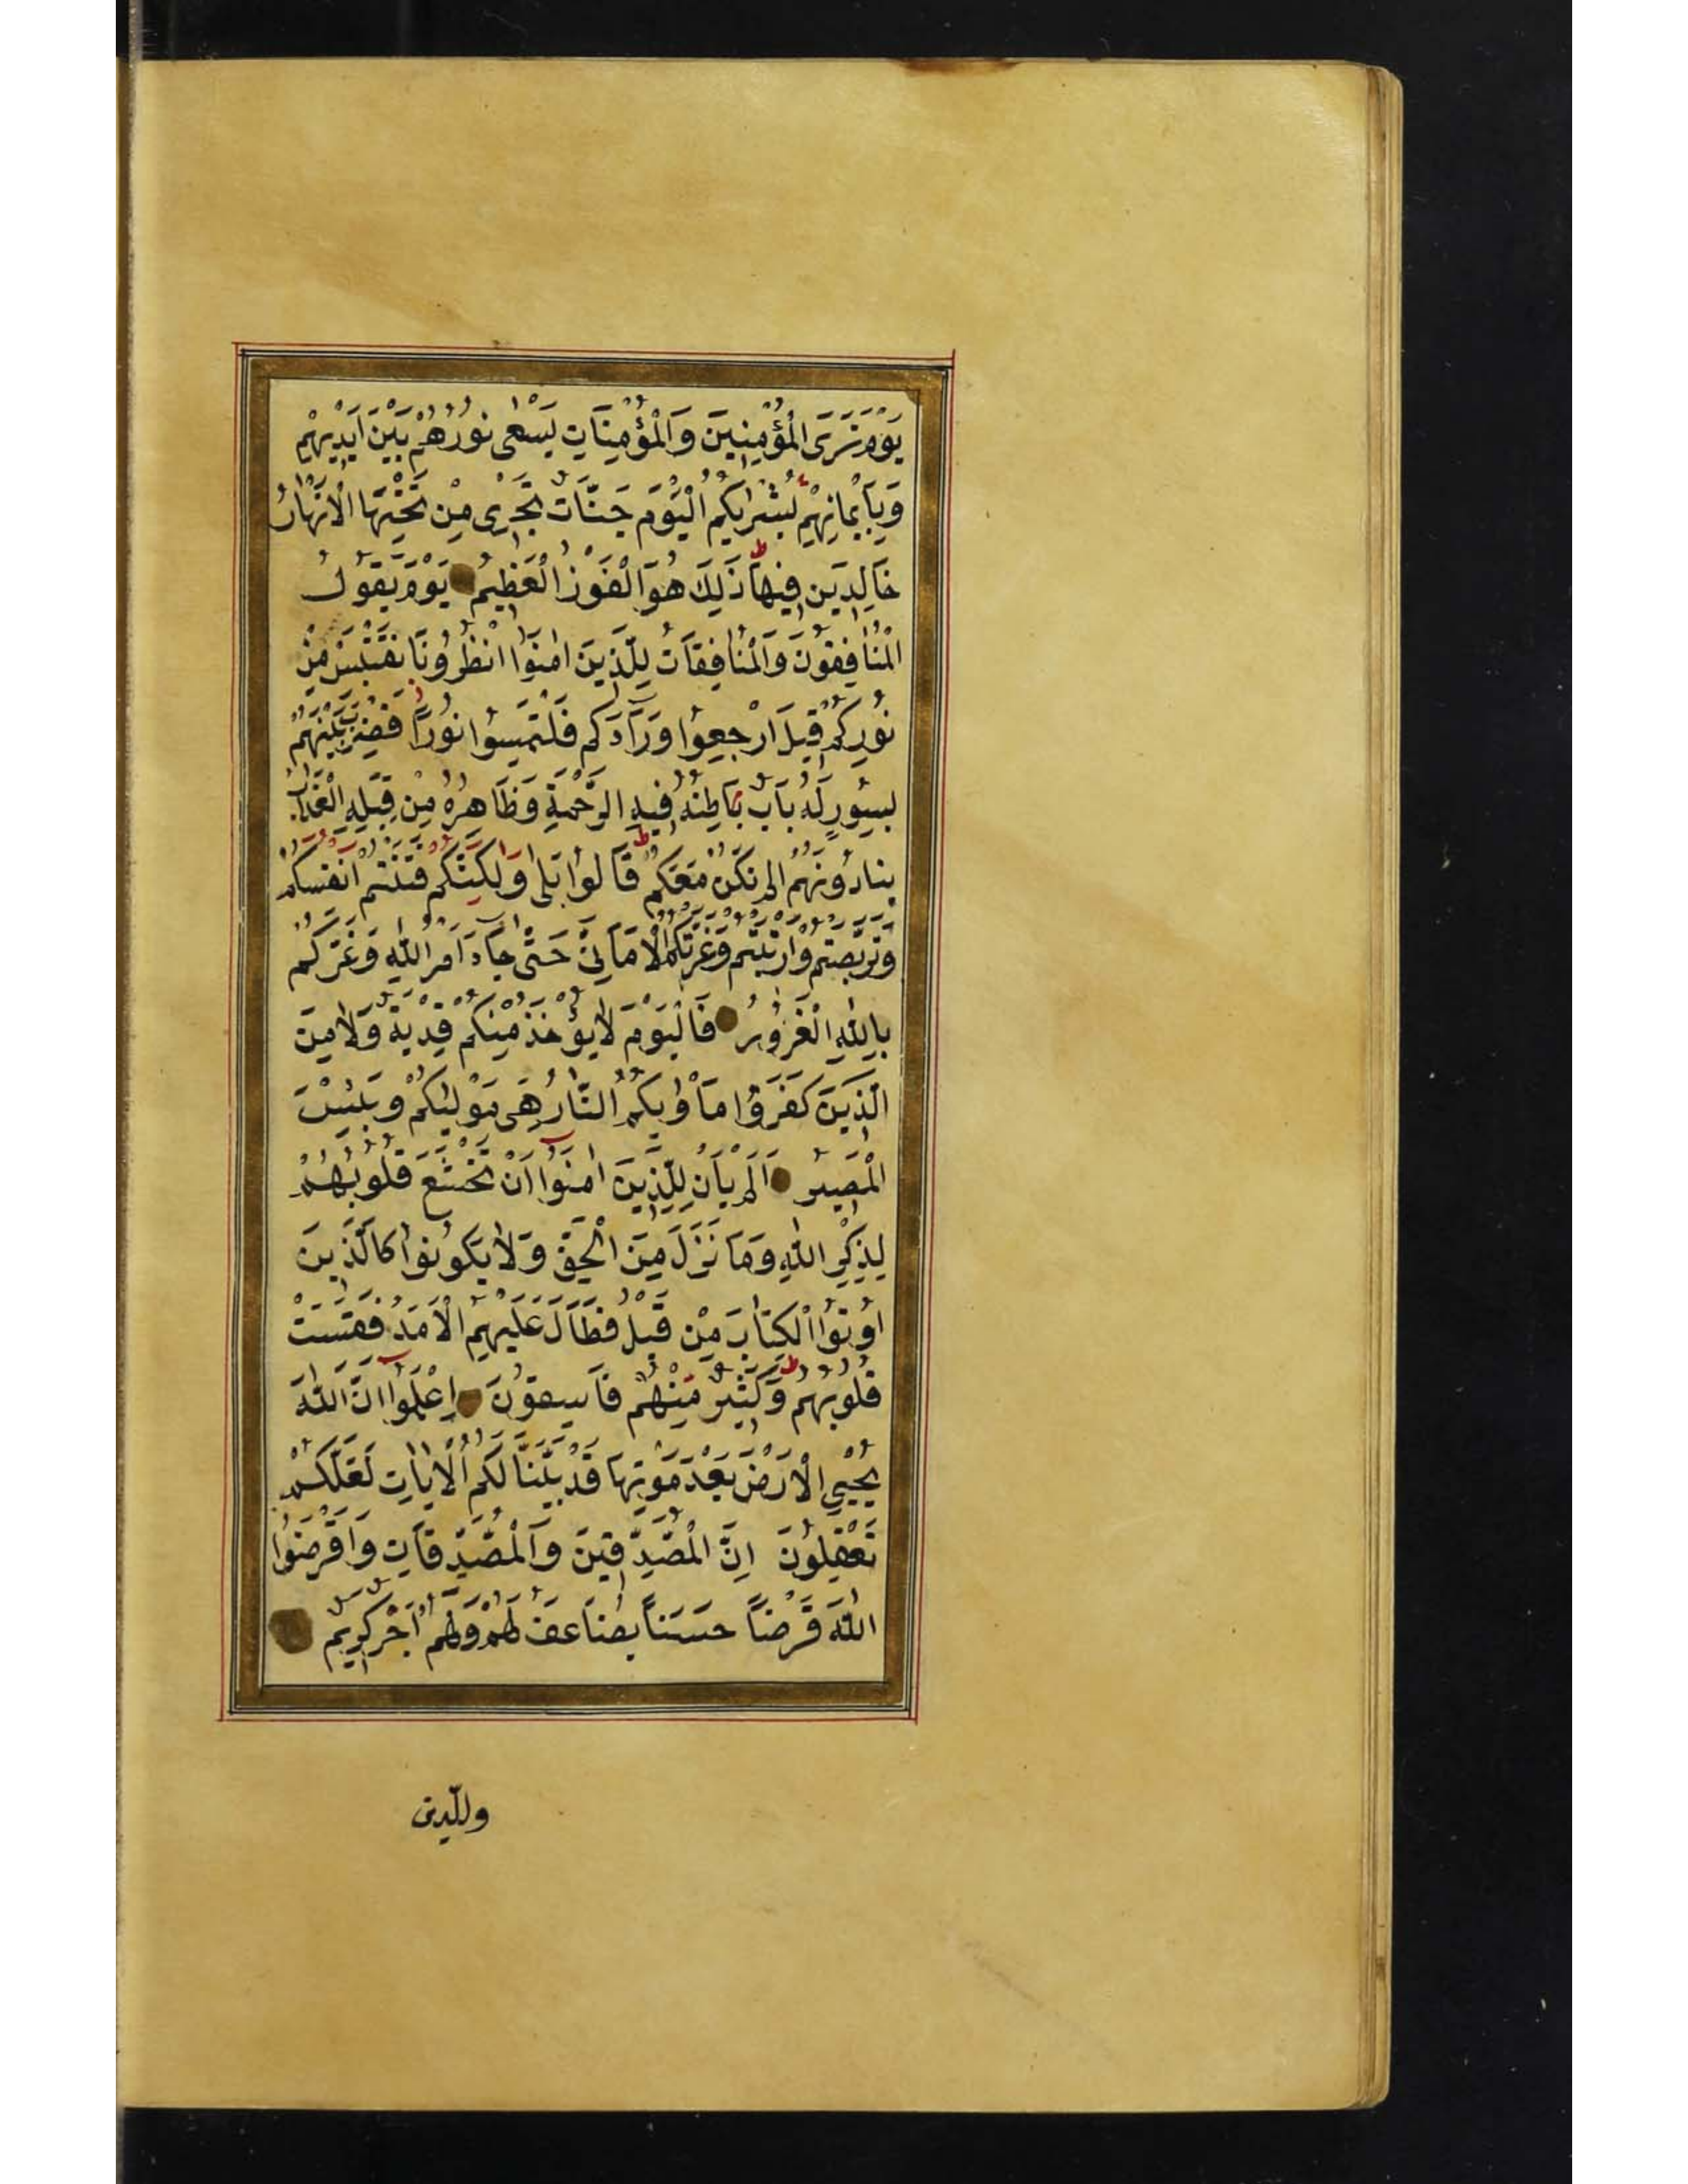 يَوْمَ تَرَى الْمُؤْمِنِينَ وَالْمُؤْمِنَاتِ يَسْعٰى نُورُهُمْ بَيْنَ اَيْدِيهِمْ
وَبِاَيْمَانِهِمْ بُشْرٰيكُمُ الْيَوْمَ جَنَّاتٌ تَجْرِى مِنْ تَحْتِهَا الْاَنْهَارُ
خَالِدِينَ فِيهَا ط ذٰلِكَ هُوَ الْفَوْزُ الْعَظِيمُ يَوْمَ يَقُولُ
الْمُنَافِقُونَ وَالْمُنَافِقَاتُ لِلَّذِينَ اٰمَنُوا انْظُرُونَا نَقْتَبِسْ مِنْ
نُورِكُمْ قِيلَ ارْجِعُوا وَرَآءَكُمْ فَلْتَمِسُوا نُورًا فَضُرِبَ بَيْنَهُمْ
بِسُورٍ لَهُ بَابٌ بَاطِنُهُ فِيهِ الرَّحْمَةِ وَظَاهِرُهُ مِنْ قِبَلِهِ الْعَذَابُ
يُنَادُونَهُمْ اَلَمْ نَكُنْ مَعَكُمْ ط قَالُوا بَلٰى وَلٰكِنَّكُمْ فَتَنْتُمْ اَنْفُسَكُمْ
وَتَرَبَّصْتُمْ وَارْتَبْتُمْ وَغَرَّتْكُمُ الْاَمَانِىُّ حَتّٰى جَآءَ اَمْرُ اللّٰهِ وَغَرَّكُمْ
بِاللّٰهِ الْغَرُورُ فَالْيَوْمَ لَا يُؤْخَذُ مِنْكُمْ فِدْيَةٌ وَلَا مِنَ
الَّذِينَ كَفَرُوا مَاْوٰيكُمُ النَّارُ هِىَ مَوْلٰيكُمْ وَبِئْسَ
الْمَصِيرُ اَلَمْ يَاْنِ لِلَّذِينَ اٰمَنُوا اَنْ تَخْشَعَ قُلُوبُهُمْ
لِذِكْرِ اللّٰهِ وَمَا نَزَلَ مِنَ الْحَقِّ وَلَا يَكُونُوا كَالَّذِينَ
اُوتُوا الْكِتَابَ مِنْ قَبْلُ فَطَالَ عَلَيْهِمُ الْاَمَدُ فَقَسَتْ
قُلُوبُهُمْ ط وَكَثِيرٌ مِنْهُمْ فَاسِقُونَ اِعْلَمُوا اَنَّ اللّٰهَ
يُحْيِى الْاَرْضَ بَعْدَ مَوْتِهَا قَدْ بَيَّنَّا لَكُمُ الْاٰيَاتِ لَعَلَّكُمْ
تَعْقِلُونَ اِنَّ الْمُصَّدِّقِينَ وَالْمُصَّدِّقَاتِ وَاَقْرَضُوا
اللّٰهَ قَرْضًا حَسَنًا يُضَاعَفُ لَهُمْ وَلَهُمْ اَجْرٌ كَرِيمٌ
وللذين